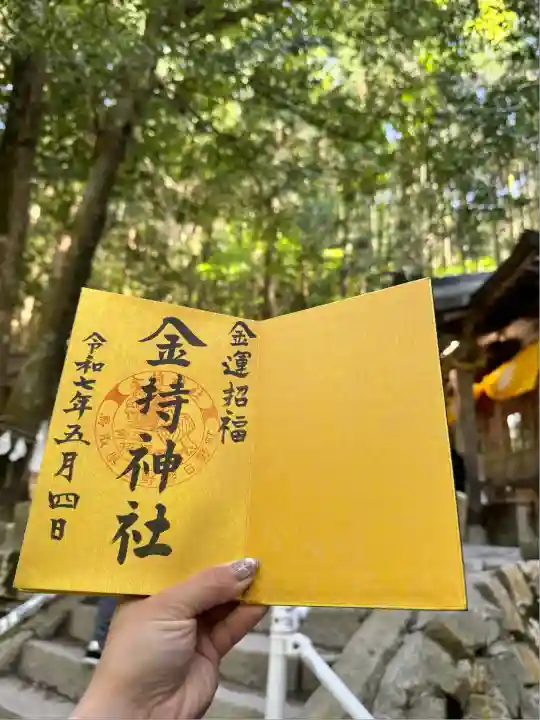 金運招福
金持神社
令和七年五月四日